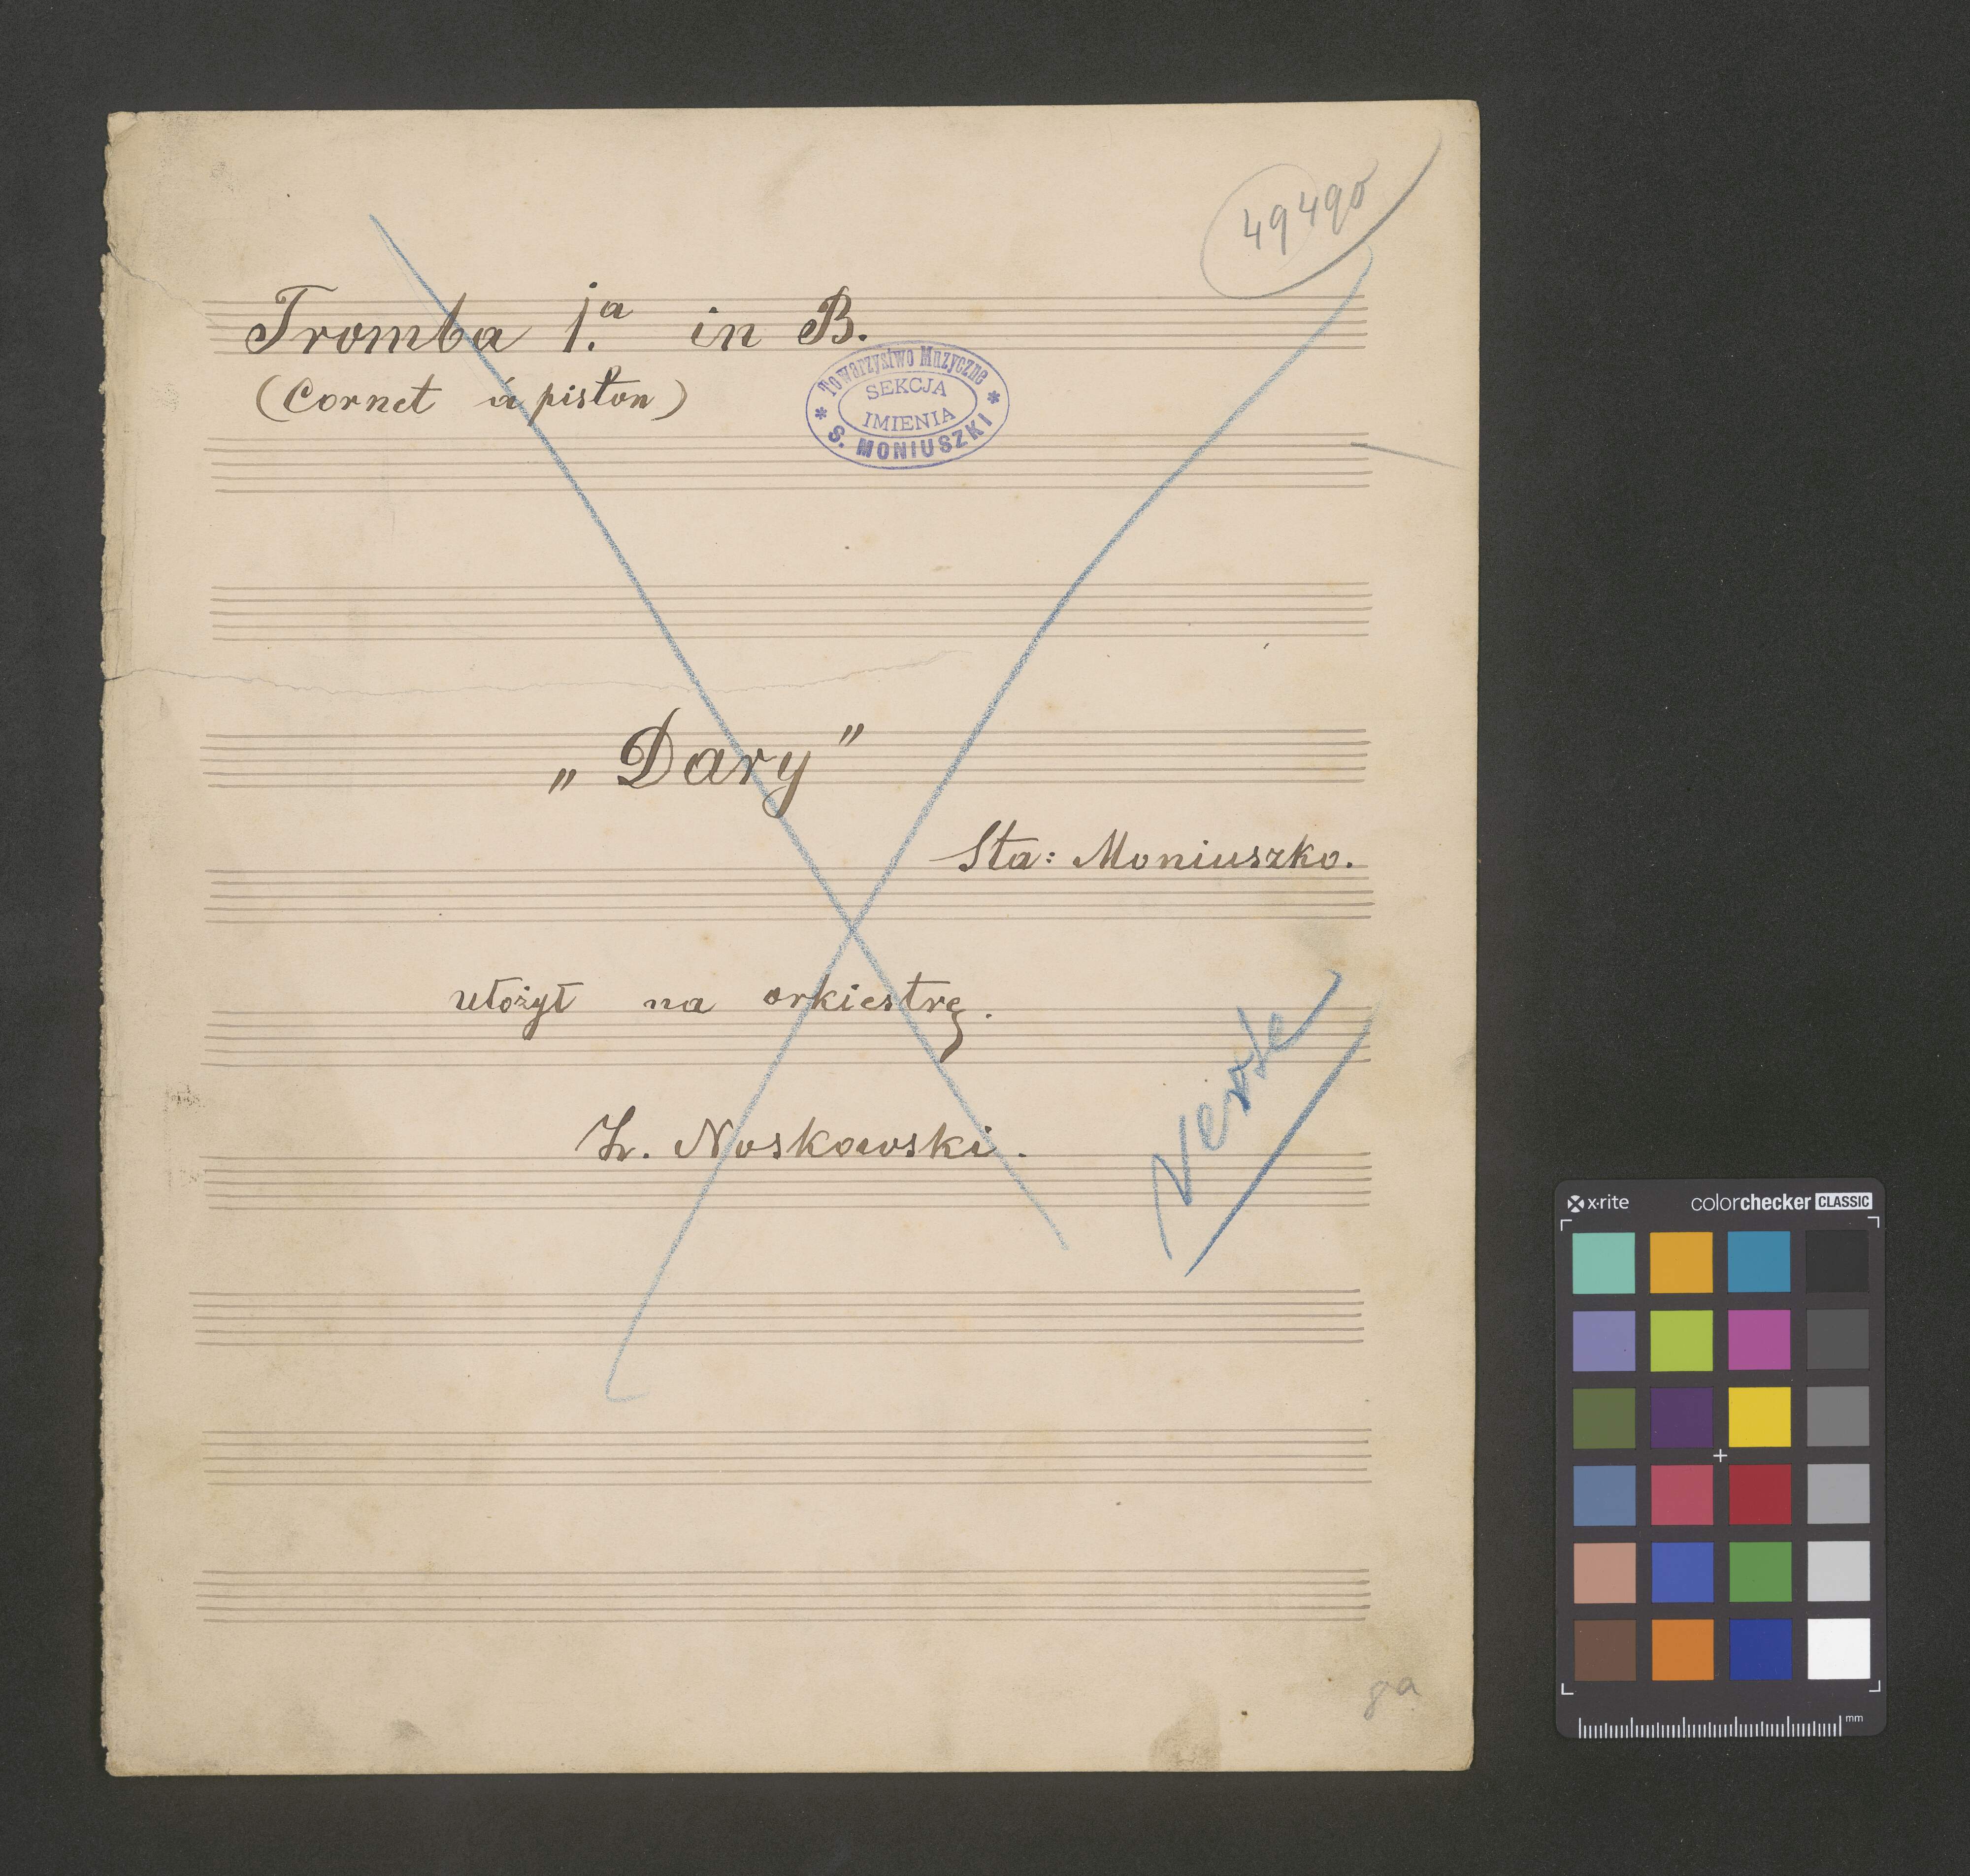 49490
Tromba 1.ª in B.
(Cornet à piston)
Towarzystwo Muzyczne
SEKCJA
IMIENIA
S. MONIUSZKI
„Dary”
Sta: Moniuszko.
ułożył na orkiestrę.
Z. Noskowski.
Verste
x-rite colorchecker CLASSIC
mm